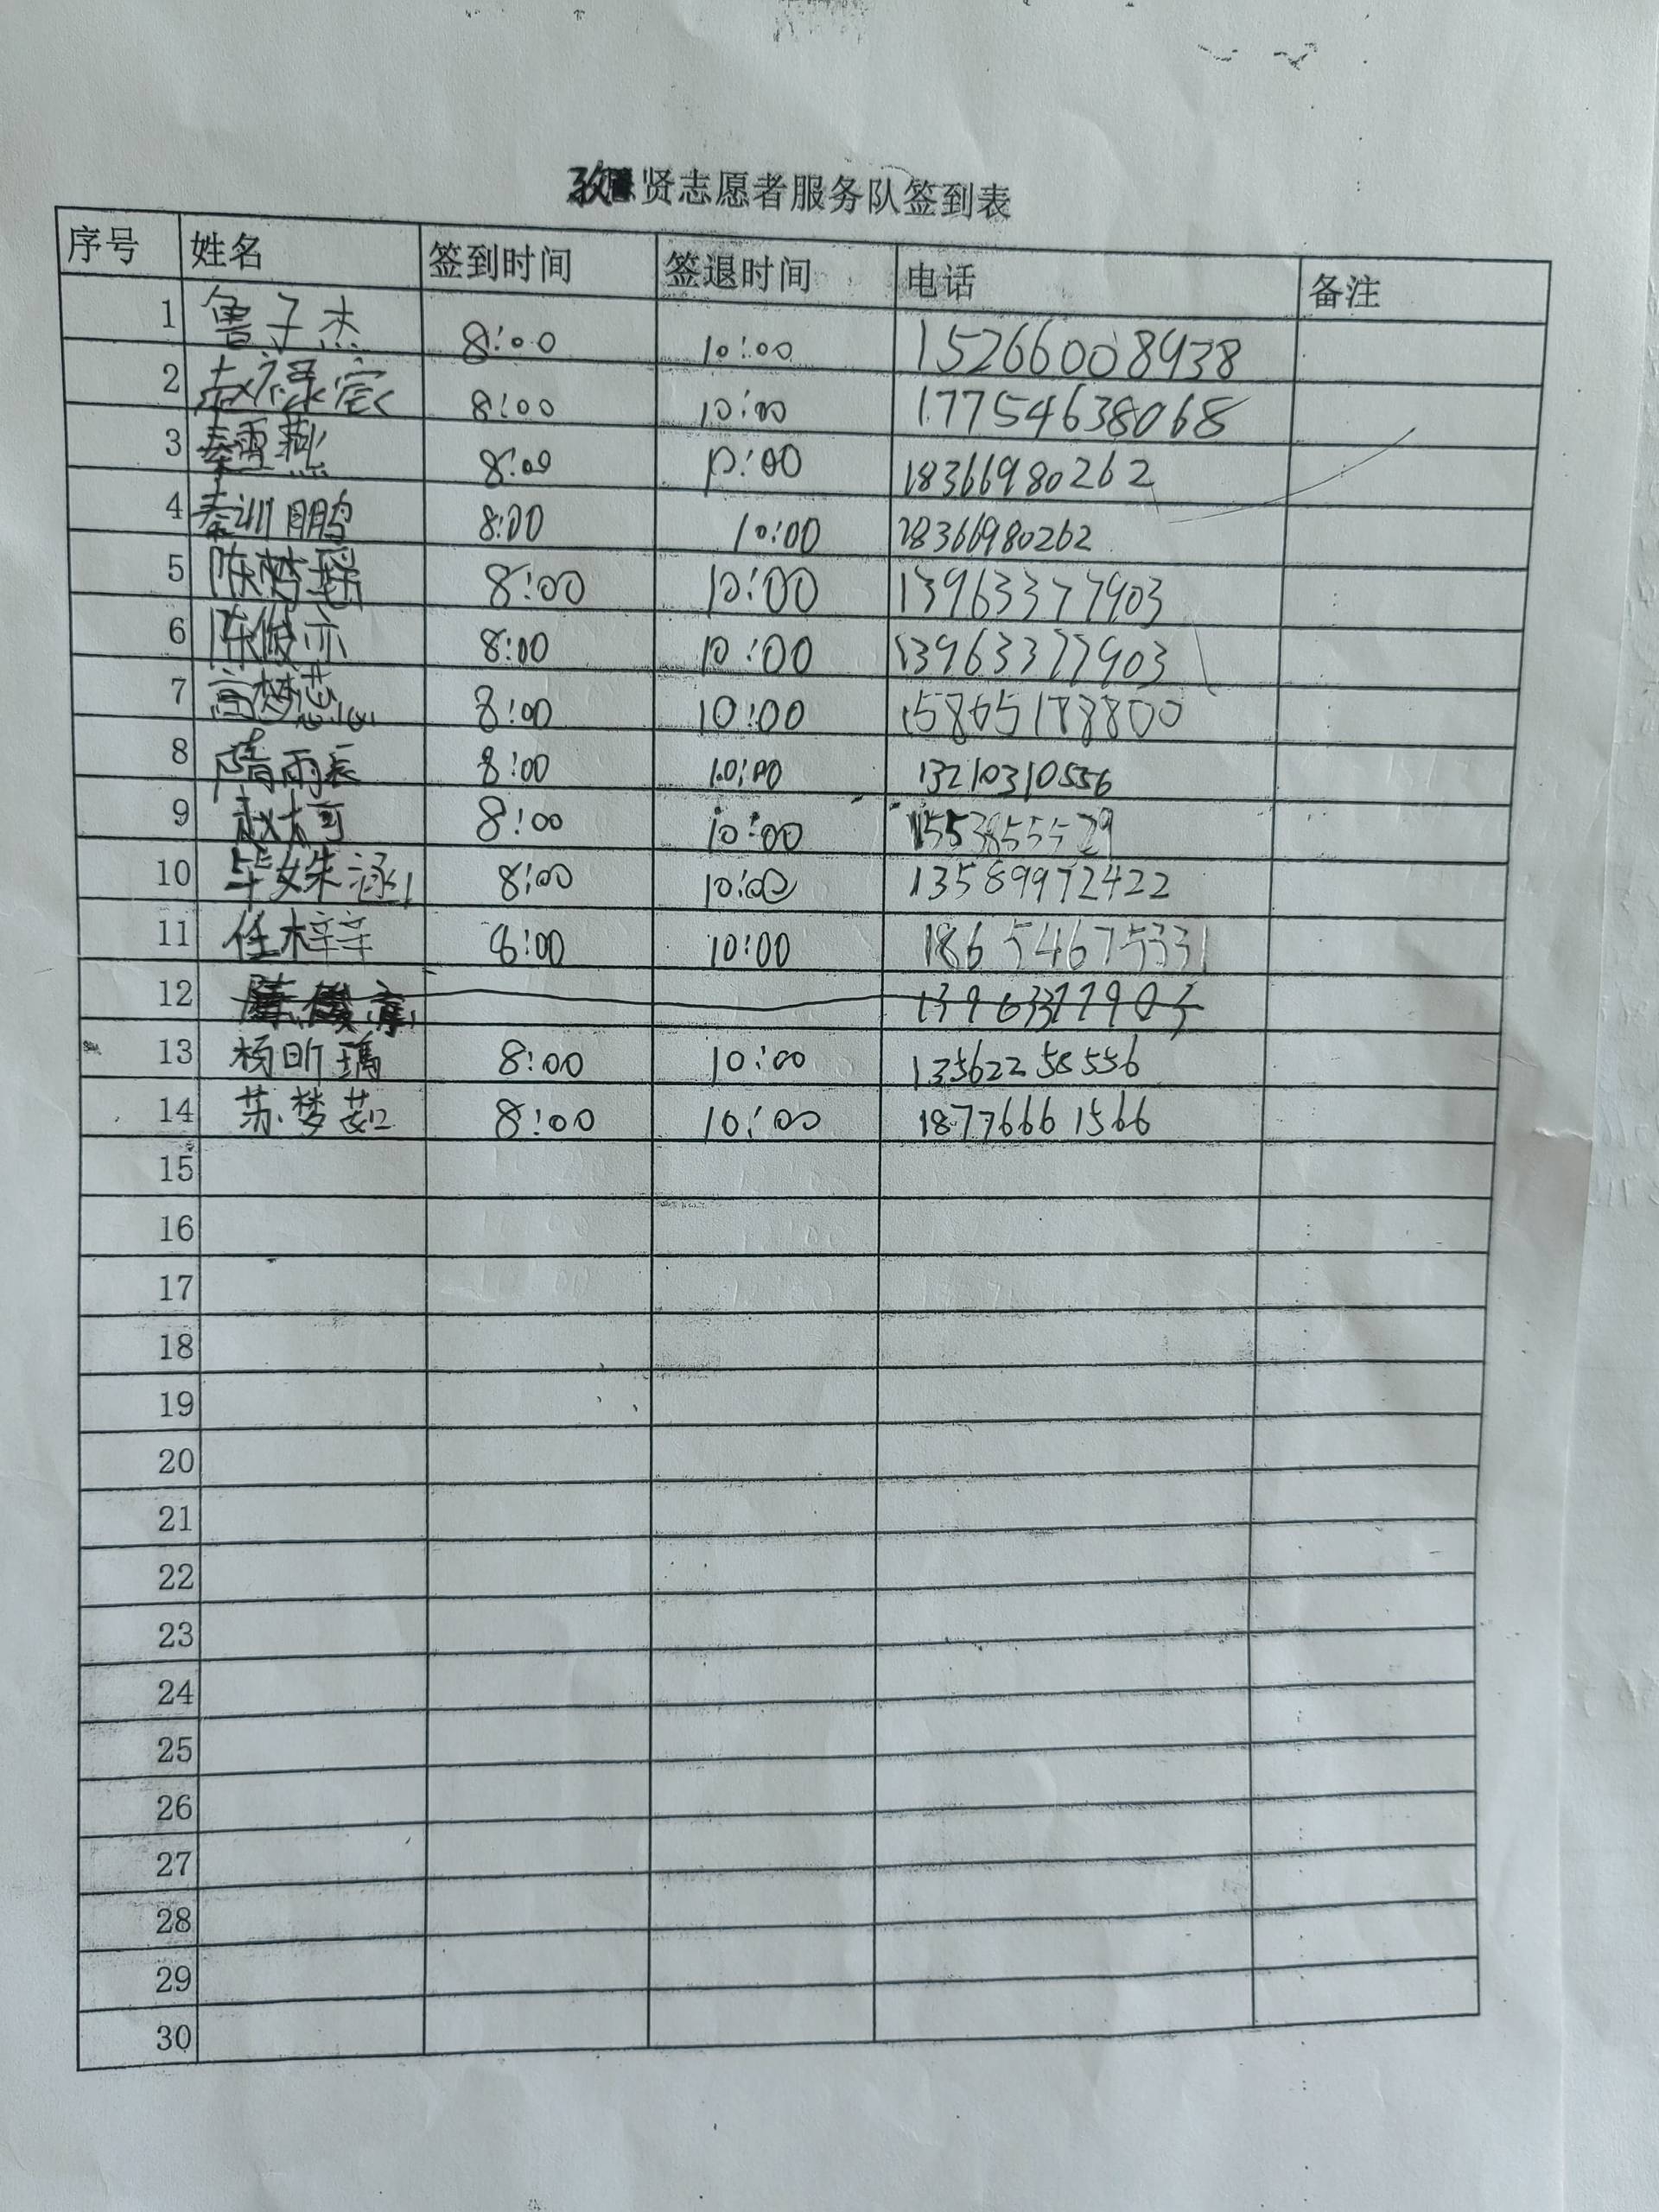 贤志愿者服务队签到表
序号 姓名 签到时间 签退时间 电话 备注
1 鲁子杰 8:00 10:00 15266008438
2 赵禄宸 8:00 10:00 17754638068
3 秦雪燕 8:00 10:00 18366980262
4 秦训鹏 8:00 10:00 18366980262
5 陈梦瑶 8:00 10:00 13963377903
6 陈俊亦 8:00 10:00 13963377903
7 高梦芯 8:00 10:00 15865188800
8 隋雨辰 8:00 10:00 13210310556
9 赵大可 8:00 10:00
10 毕姝涵 8:00 10:00 13589972422
11 任梓辛 8:00 10:00 18654675331
12 13963377903
13 杨昕瑀 8:00 10:00 13562258556
14 苏梦茹 8:00 10:00 18776661566
15
16
17
18
19
20
21
22
23
24
25
26
27
28
29
30